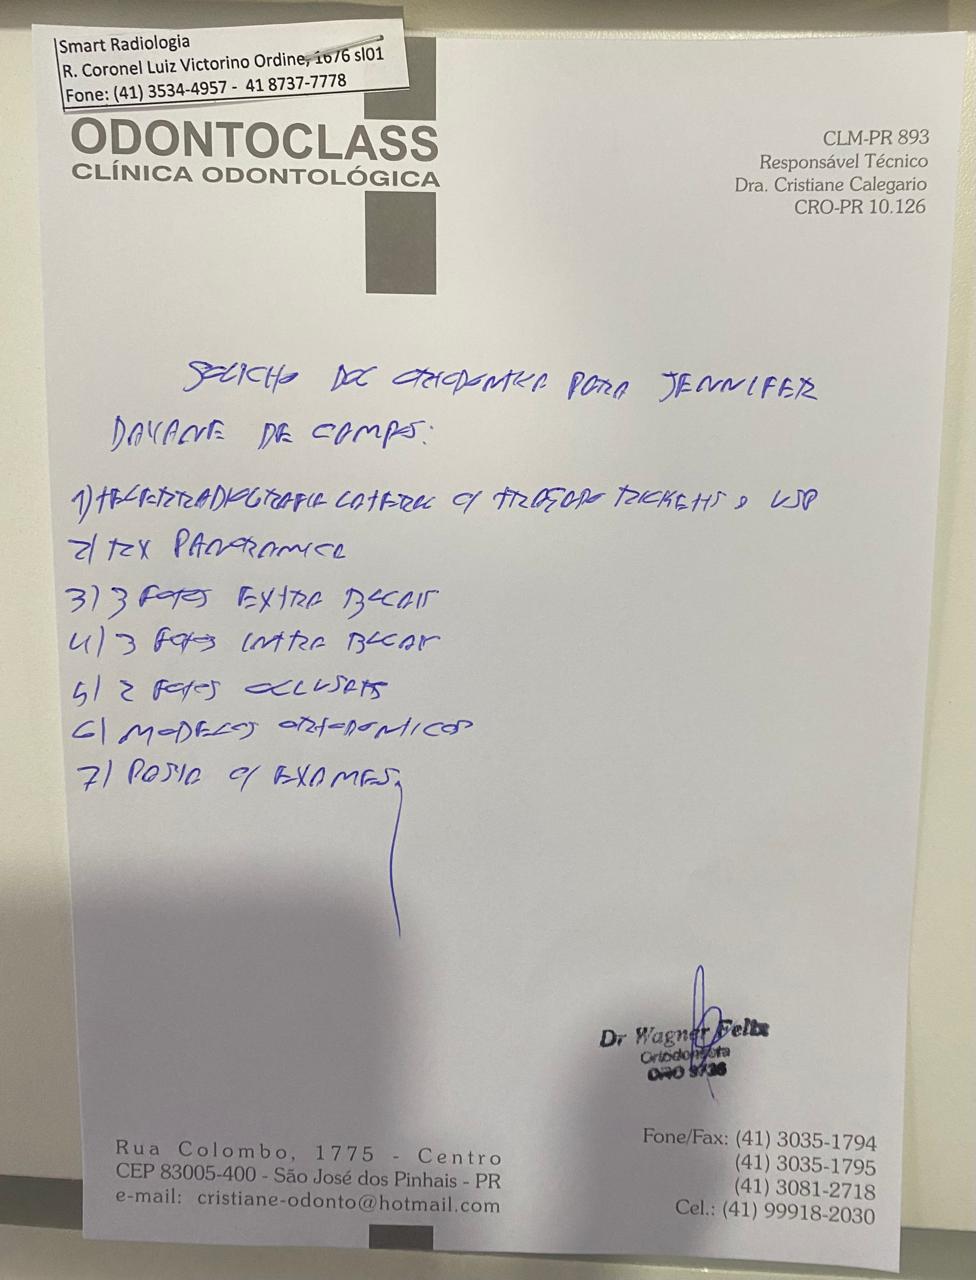 Smart Radiologia
R. Coronel Luiz Victorino Ordine, 1676 sl01
Fone: (41) 3534-4957 - 41 8737-7778
ODONTOCLASS
CLÍNICA ODONTOLÓGICA
CLM-PR 893
Responsável Técnico
Dra. Cristiane Calegario
CRO-PR 10.126
SOLICITO DOC ORTODONTICA PARA JENNIFER
DAYANE DE CAMPOS:
1) TELERRADIOGRAFIA LATERAL C/ TRAÇADO RICKETTS E USP
2) RX PANORAMICA
3) 3 FOTOS EXTRA BUCAIS
4) 3 FOTOS INTRA BUCAIS
5) 2 FOTOS OCLUSAIS
6) MODELOS ORTODONTICOS
7) PASTA C/ EXAMES.
Dr Wagner Felix
Ortodontista
CRO 9736
Rua Colombo, 1775 - Centro
CEP 83005-400 - São José dos Pinhais - PR
e-mail: cristiane-odonto@hotmail.com
Fone/Fax: (41) 3035-1794
(41) 3035-1795
(41) 3081-2718
Cel.: (41) 99918-2030